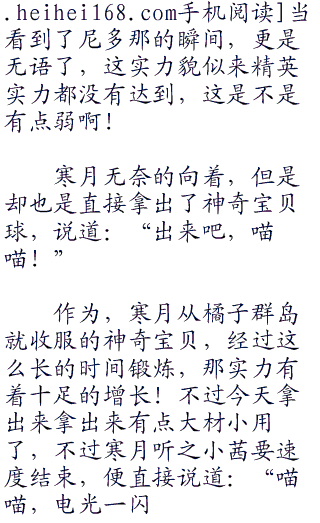 .heihei168.com手机阅读]当
看到了尼多那的瞬间，更是
无语了，这实力貌似来精英
实力都没有达到，这是不是
有点弱啊！
寒月无奈的向着，但是
却也是直接拿出了神奇宝贝
球，说道：“出来吧，喵
喵！”
作为，寒月从橘子群岛
就收服的神奇宝贝，经过这
么长的时间锻炼，那实力有
着十足的增长！不过今天拿
出来拿出来有点大材小用
了，不过寒月听之小茜要速
度结束，便直接说道：“喵
喵，电光一闪